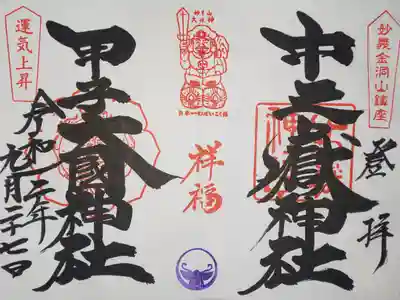 妙義金洞山鎮座
登拝
中之嶽神社
祥福
甲子大國神社
運気上昇
令和二年
九月二十七日